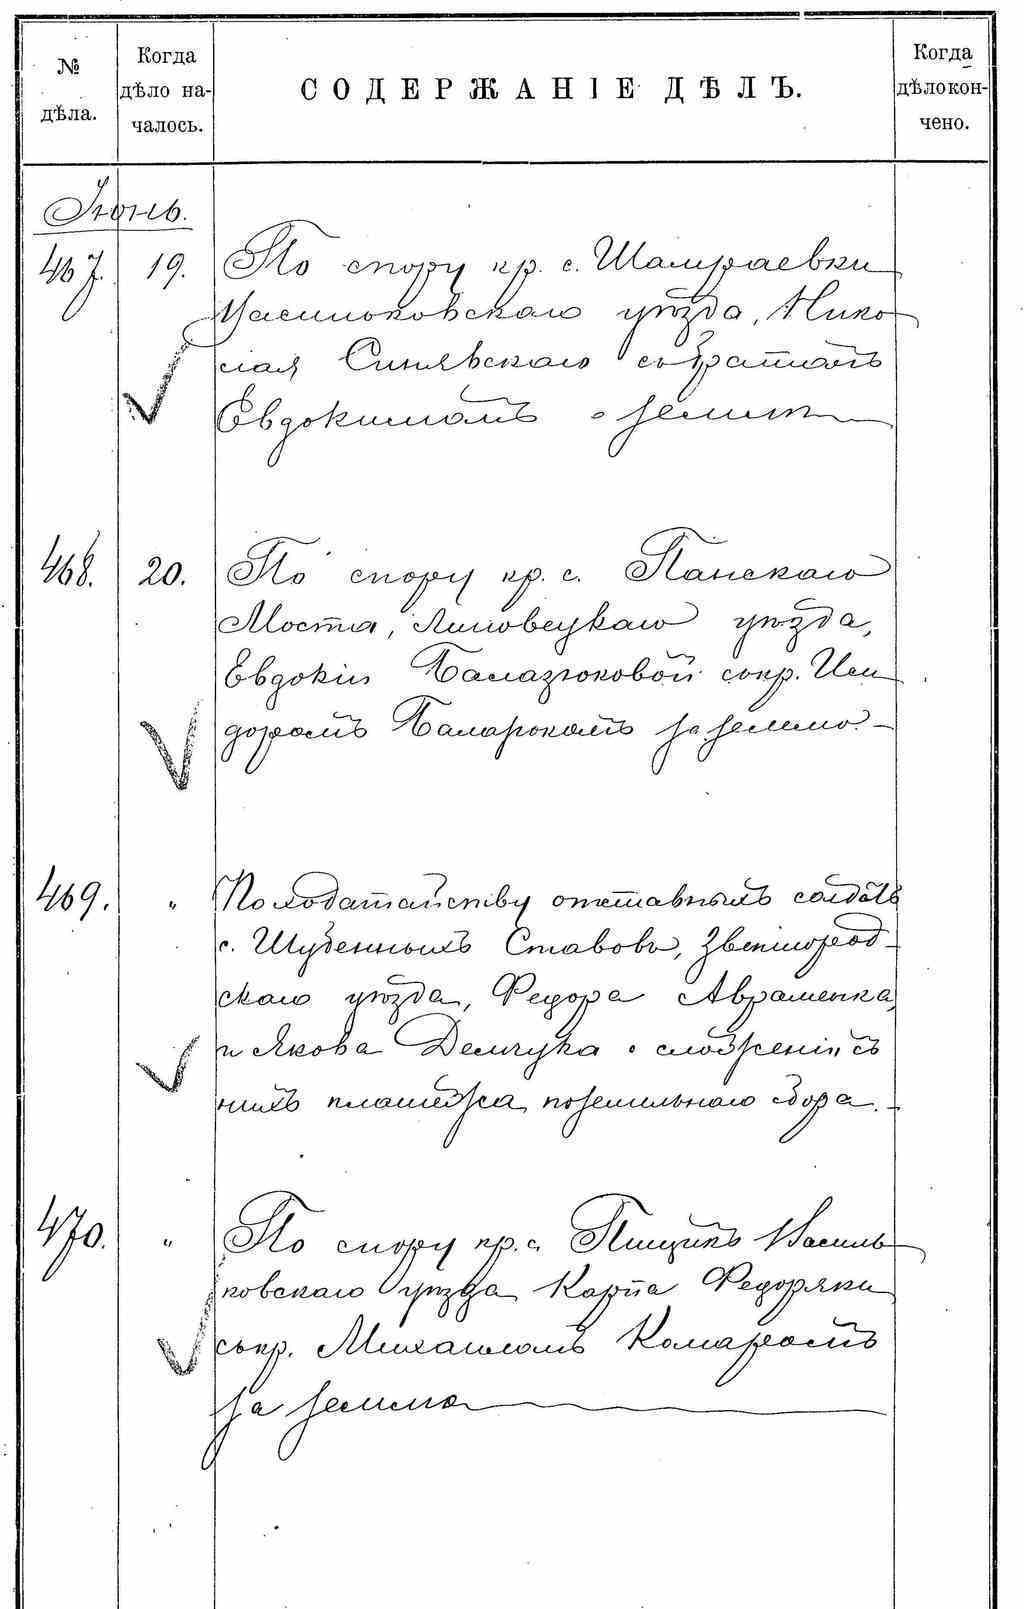 № дѣла.
Когда дѣло на-
чалось.
СОДЕРЖАНІЕ ДѢЛЪ.
Когда дѣло кон-
чено.
Іюнь.
467. 19. По спору кр. с. Шамраевки
Васильковскаго уѣзда, Нико
лая Синявскаго съ братомъ
Евдокимомъ о землѣ
468. 20. По спору кр. с. Панскаго
Моста, Липовецкаго уѣзда,
Евдокіи Балазюковой съ кр. Иси
доромъ за землю.
469. " По ходатайству отставныхъ солдатъ
с. Шубенныхъ Ставовъ, Звенигород-
скаго уѣзда, Федора Авраменка,
и Якова Демчука о сложеніи съ
нихъ платежа поземельнаго сбора.
470. " По спору кр. с. Пищикъ Василь
ковскаго уѣзда Карпа Федоряки
съ кр. Михаиломъ Комаромъ
за землю